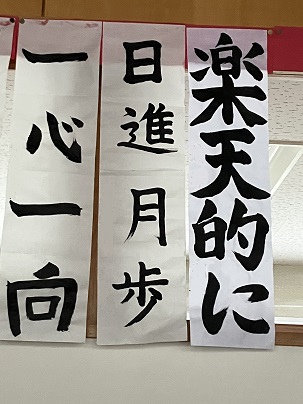 楽天的に
日進月歩
一心一向